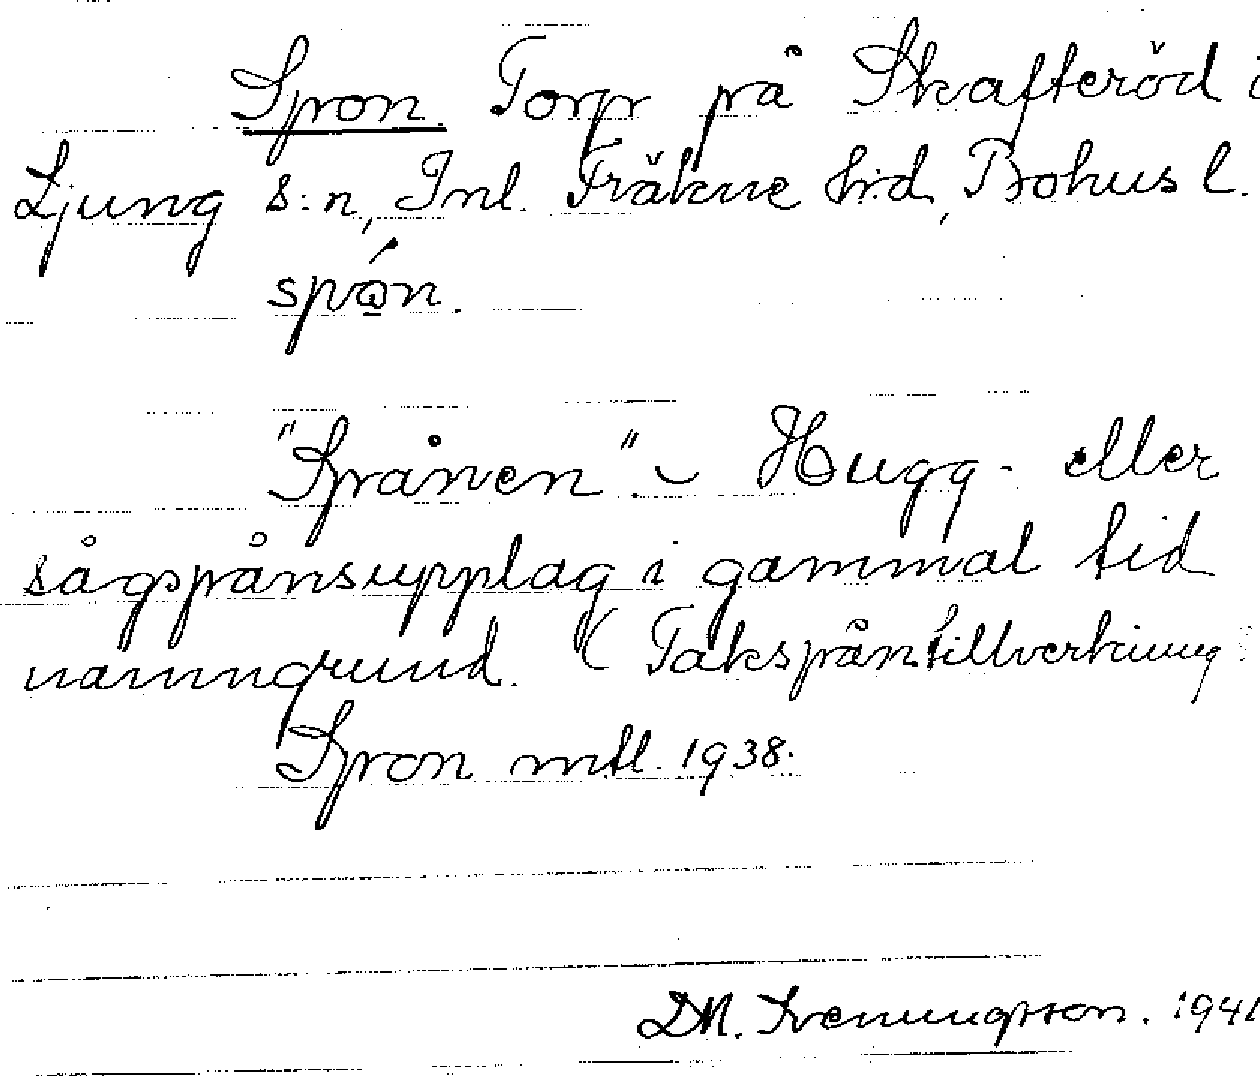 Spron Torp på Skafteröd i
Ljung s:n, Inl. Fräkne hd, Bohus l.
"Spånen" - Hugg- eller
sågspånsupplag i gammal tid
namngrund. (Takspåntillverkning
Spron mtl. 1938.
DM. Svenungsson. 1941